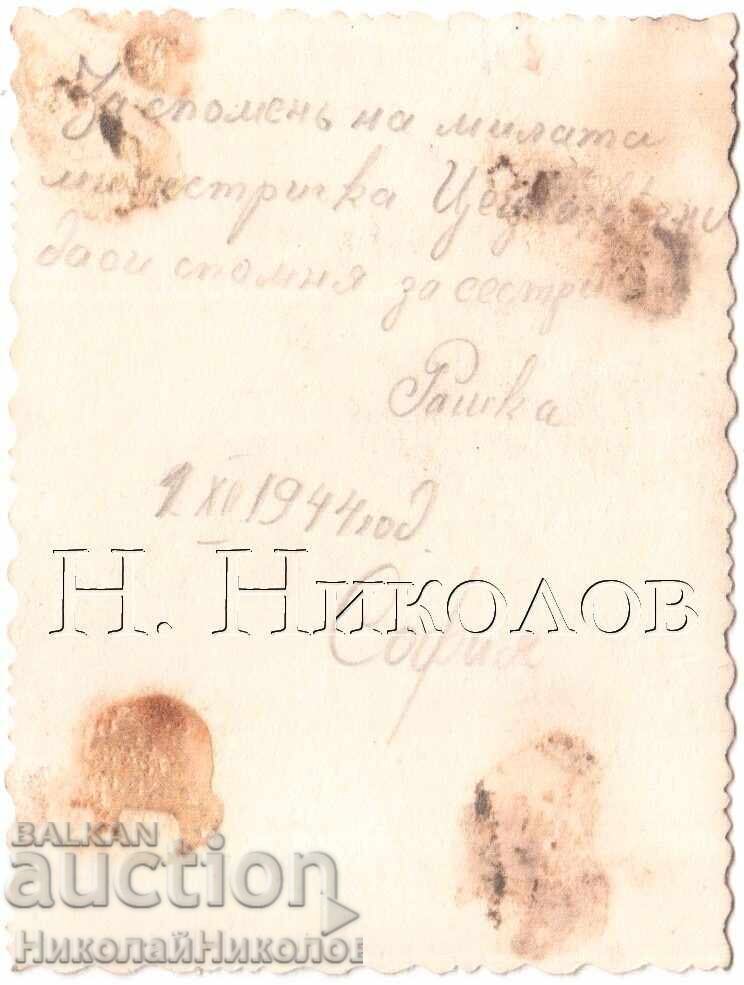 За спомень на милата
ми сестричка
да си спомня за
Рашка
1 XII 1944 год.
Н. Николов
София
BALKAN
auction
НиколайНиколов